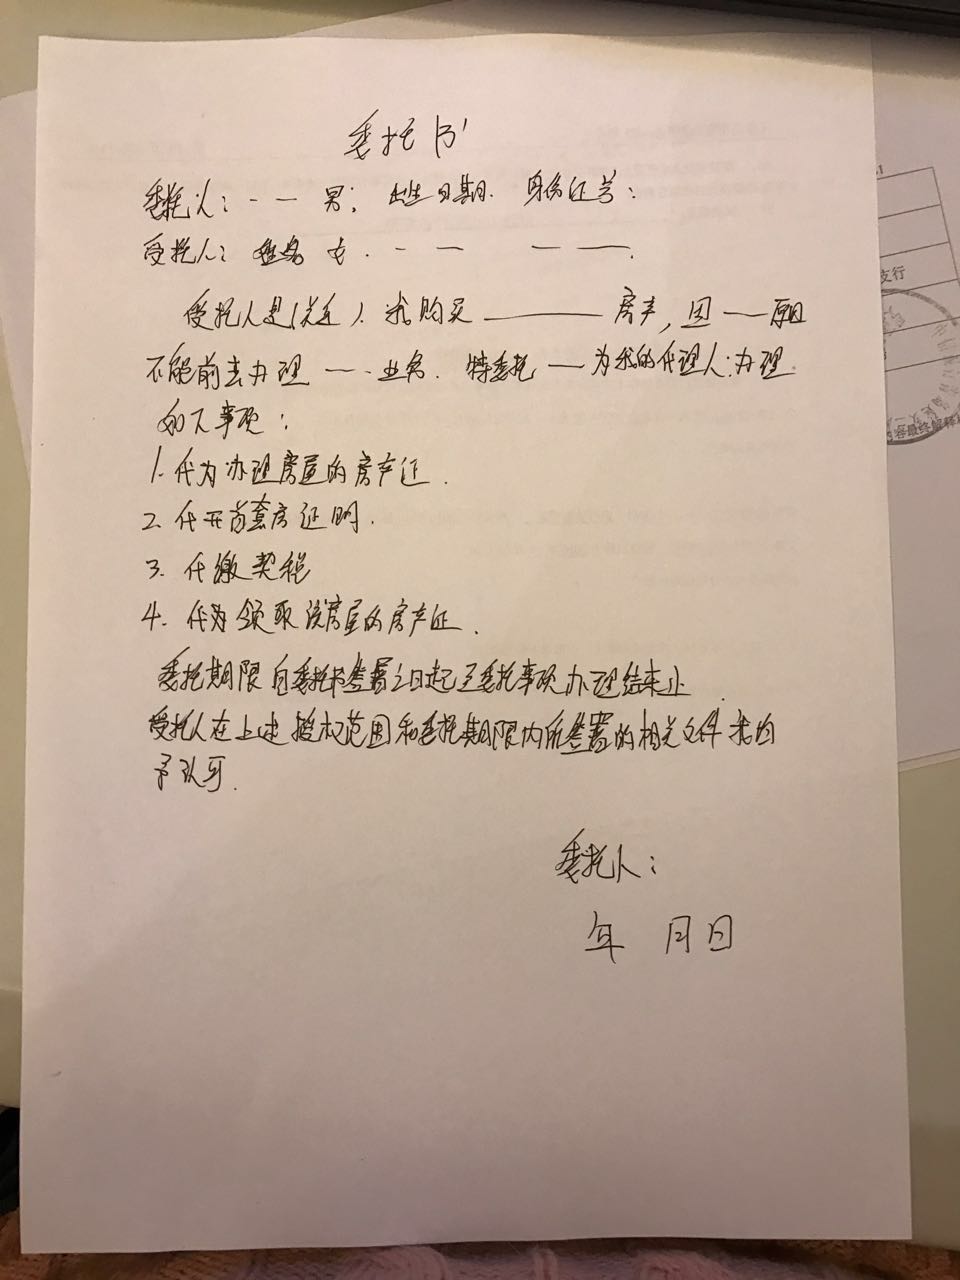 委托书
委托人：— — 男； 出生日期. 身份证号：
受托人： 姓名 女. — — — —.
受托人是(关系). 我购买 ——— 房产, 因 — 原因
不能前去办理 —. 业务. 特委托 — 为我的代理人:办理
如下事项：
1. 代为办理房屋的房产证.
2. 代开首套房证明.
3. 代缴契税
4. 代为领取该房屋的房产证.
委托期限自委托书签署之日起至委托事项办理结束止
受托人在上述授权范围和委托期限内所签署的相关文件我均
予认可.
委托人：
年 月 日
支行
容最终解释